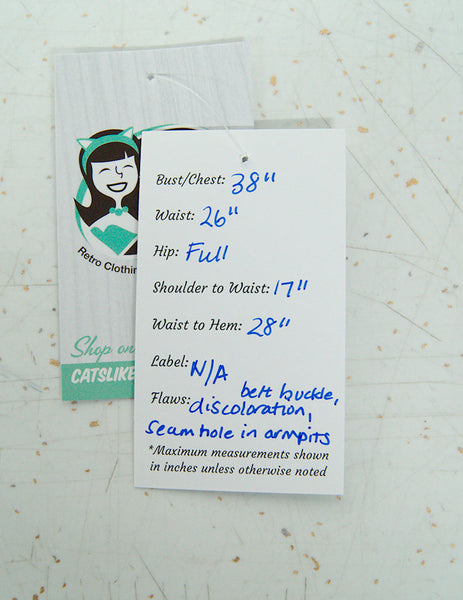 Bust/Chest: 38"
Waist: 26"
Hip: Full
Shoulder to Waist: 17"
Waist to Hem: 28"
Label: N/A
Flaws: belt buckle,
discoloration,
seam hole in armpits
*Maximum measurements shown
in inches unless otherwise noted
Retro Clothin
Shop on
CATSLIKE